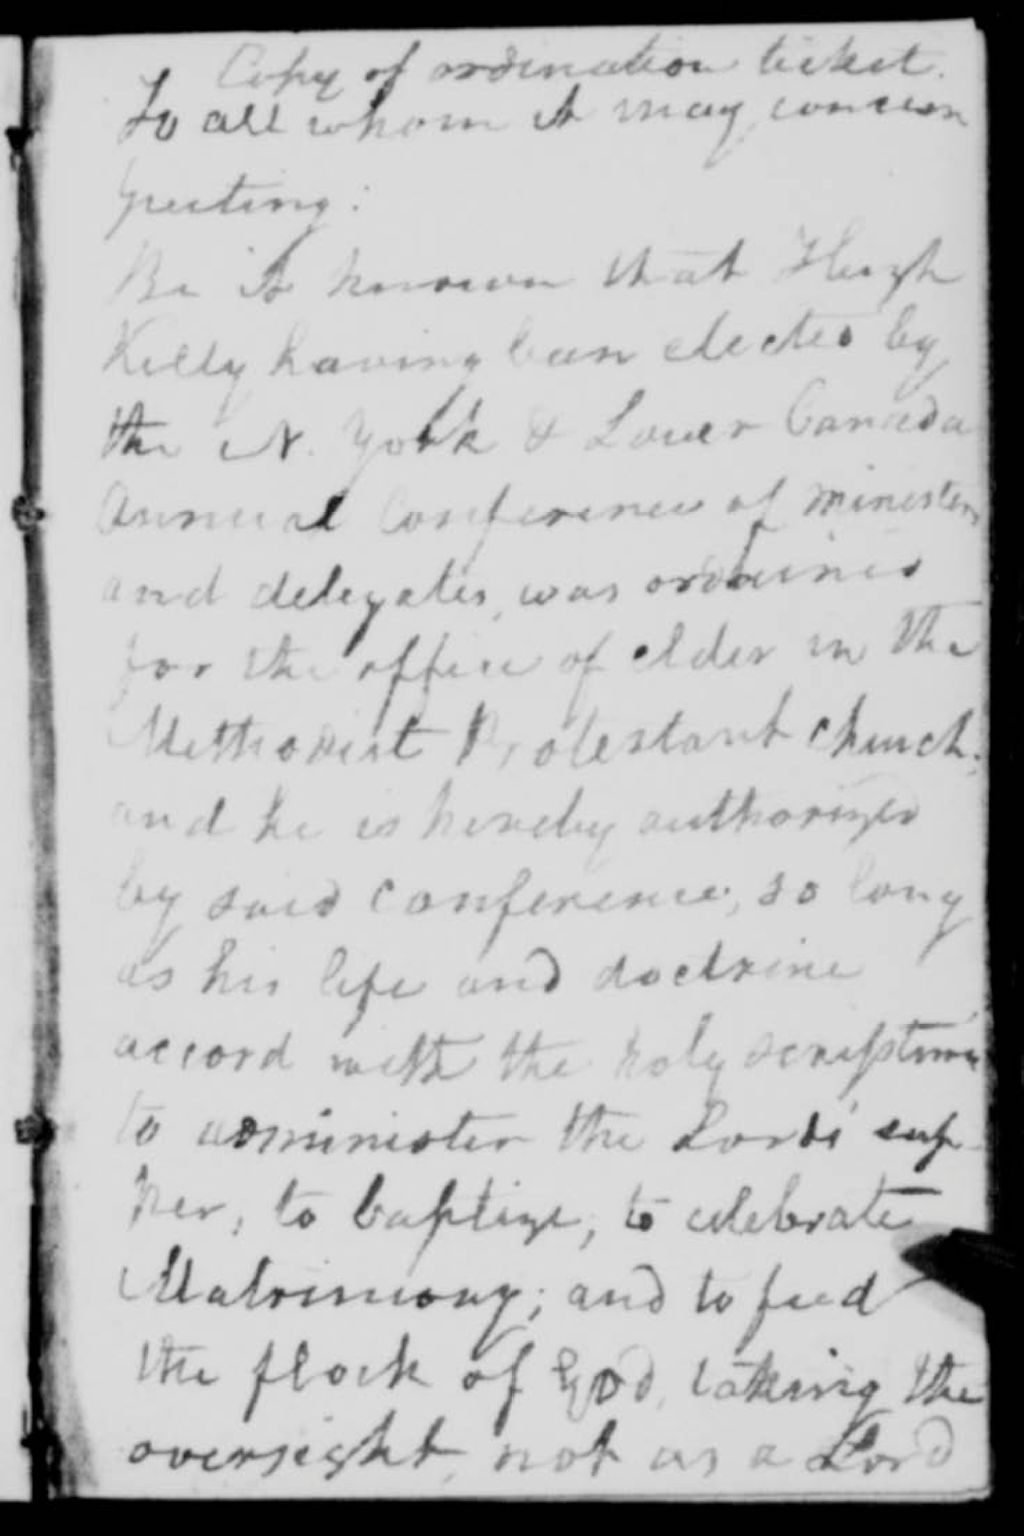 Copy of ordination ticket.
To all whom it may concern
Greeting:
Be it known that Hugh
Kelly having been elected by
the N. York & Lower Canada
Annual Conference of ministers
and delegates, was ordained
for the office of elder in the
Methodist Protestant church;
and he is hereby authorized
by said conference, so long
as his life and doctrine
accord with the holy scriptures
to administer the Lords' sup-
per, to baptize, to celebrate
Matrimony; and to feed
the flock of God, taking the
oversight, not as a Lord